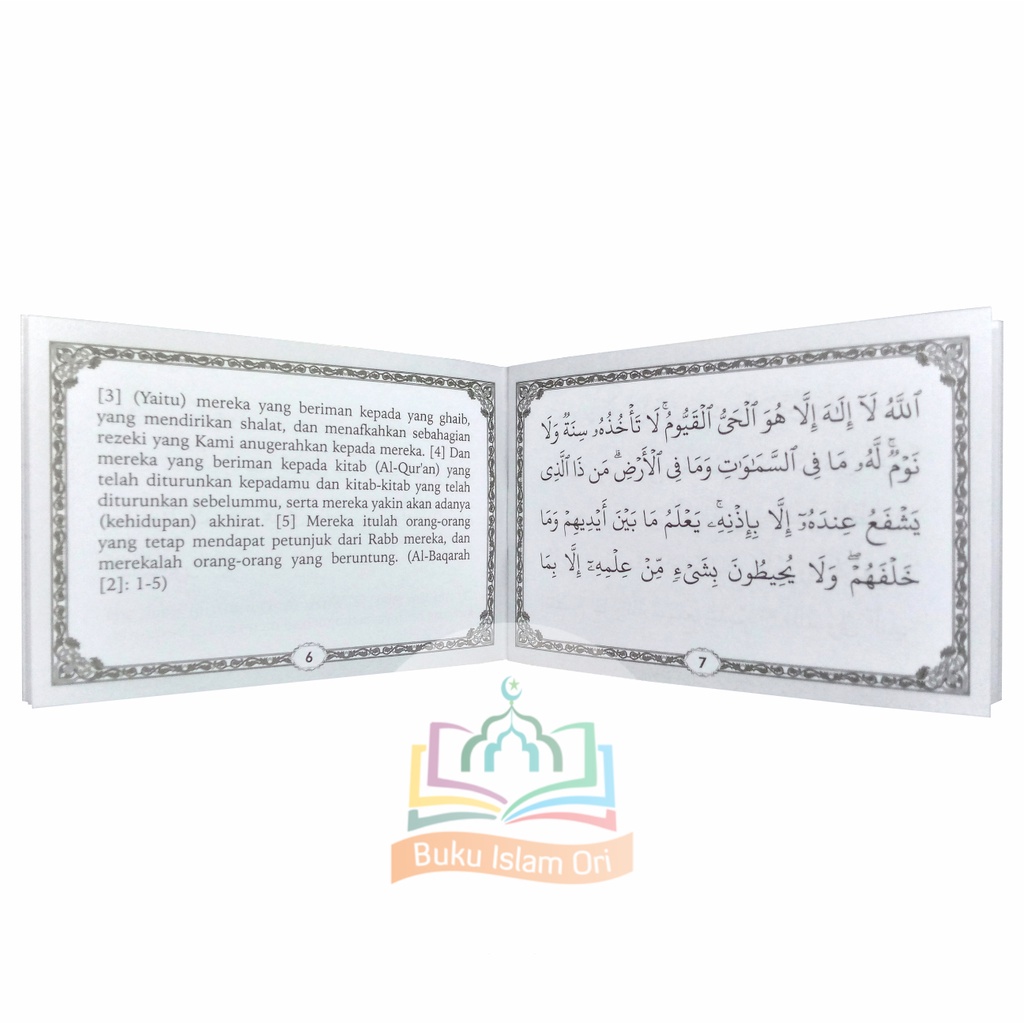 [3] (Yaitu) mereka yang beriman kepada yang ghaib,
yang mendirikan shalat, dan menafkahkan sebahagian
rezeki yang Kami anugerahkan kepada mereka. [4] Dan
mereka yang beriman kepada kitab (Al-Qur'an) yang
telah diturunkan kepadamu dan kitab-kitab yang telah
diturunkan sebelummu, serta mereka yakin akan adanya
(kehidupan) akhirat. [5] Mereka itulah orang-orang
yang tetap mendapat petunjuk dari Rabb mereka, dan
merekalah orang-orang yang beruntung. (Al-Baqarah
[2]: 1-5)
6
ٱللَّهُ لَآ إِلَـٰهَ إِلَّا هُوَ ٱلۡحَيُّ ٱلۡقَيُّومُۚ لَا تَأۡخُذُهُۥ سِنَةٌ وَلَا
نَوۡمٌۚ لَّهُۥ مَا فِى ٱلسَّمَـٰوَٰتِ وَمَا فِى ٱلۡأَرۡضِۗ مَن ذَا ٱلَّذِى
يَشۡفَعُ عِندَهُۥٓ إِلَّا بِإِذۡنِهِۦۚ يَعۡلَمُ مَا بَيۡنَ أَيۡدِيهِمۡ وَمَا
خَلۡفَهُمۡۖ وَلَا يُحِيطُونَ بِشَىۡءٍ مِّنۡ عِلۡمِهِۦٓ إِلَّا بِمَا
7
Buku Islam Ori